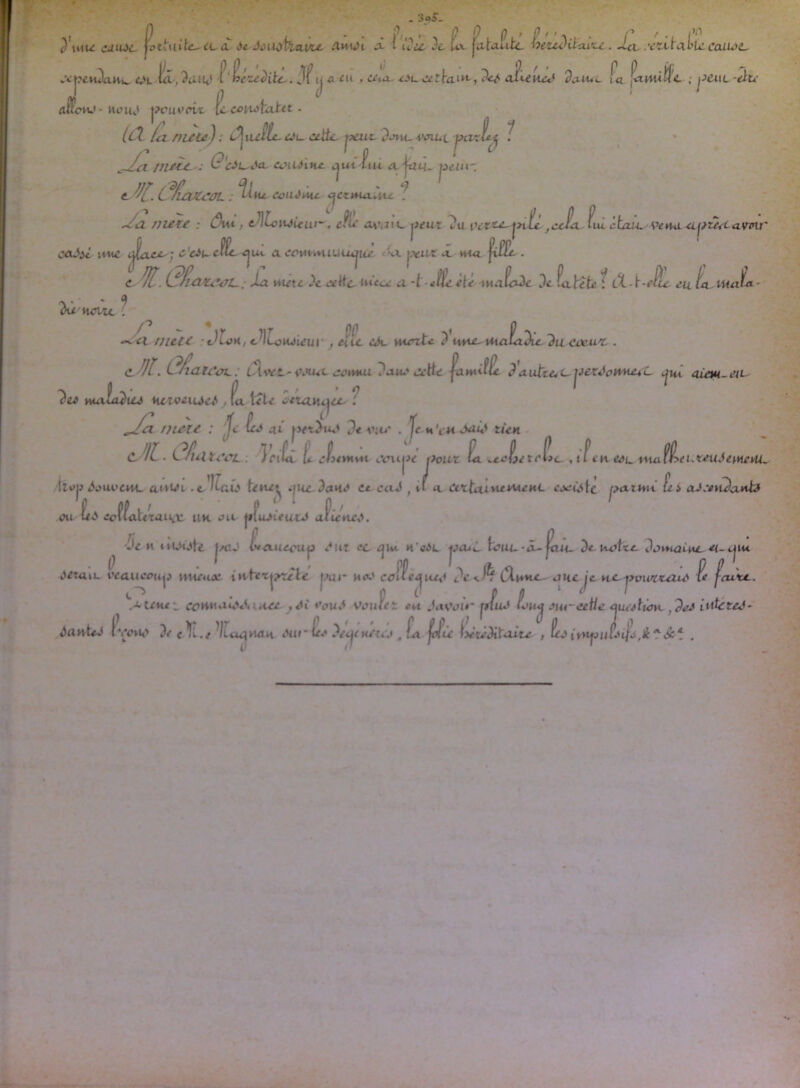 - 395-
d'une cause fortuite et à se soustraire ainsi à l'idée de la fatalité héréditaire. La véritable cause
cependant est là, dans l'hérédité. Il y a eu, cela est certain, des aliénés dans la famille ; peut-être
allons-nous pouvoir le constater.
(A la mère) : Quelle est cette peur dont vous parlez ?
La mère : C'est sa cousine qui lui a fait peur.
M. Charcot : Une cousine germaine ?
La mère : Oui, Monsieur, elle avait peur du verre pilé, cela lui était venu après avoir
cassé une glace ; c'est elle qui a communiqué sa peur à ma fille.
M. Charcot : La mère de cette nièce a-t-elle été malade de la tête ? A-t-elle eu la mala-
die noire ?
La mère : Non, Monsieur, elle est morte d'une maladie du cœur.
M. Charcot : Avez-vous connu dans cette famille d'autres personnes qui aient eu
des maladies nerveuses, la tête dérangée ?
La mère : Je les ai perdus de vue. Je n'en sais rien
M. Charcot : Voilà le chemin coupé pour la recherche, il en est malheureusement
trop souvent ainsi. Mais tenez que dans ce cas, il a certainement existé parmi les ascendants
ou les collatéraux un ou plusieurs aliénés.
Je n'insiste pas beaucoup sur ce qui n'est pas tout-à-fait de notre domaine et qui
serait beaucoup mieux interprété par nos collègues de Ste Anne que je ne pourrais le faire.
Prenez connaissance, si vous voulez en savoir plus long sur cette question, des intéres-
santes leçons de M. Magnan sur les dégénérés, la folie héréditaire, les impulsifs, &c &c.